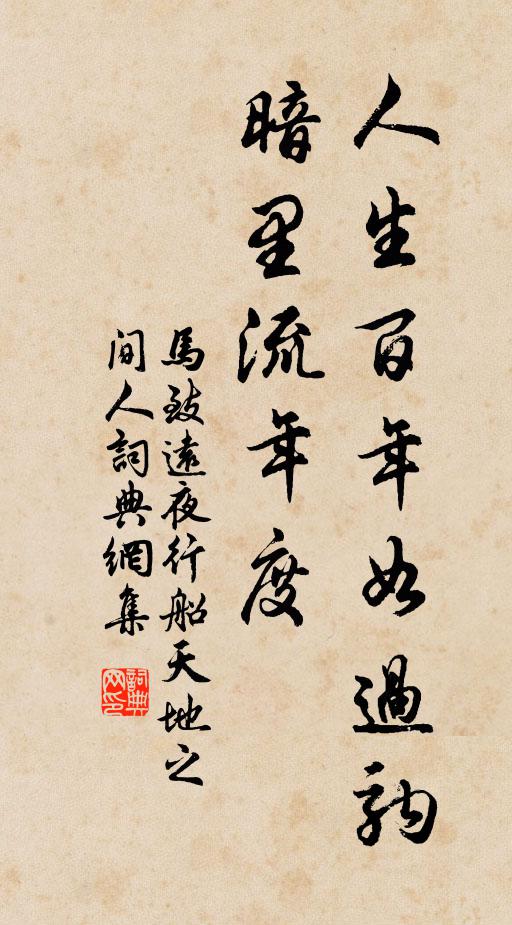 人生百年如過駒
暗里流年度
馬致遠夜行船天地之
間人詞典網集
詞典网印